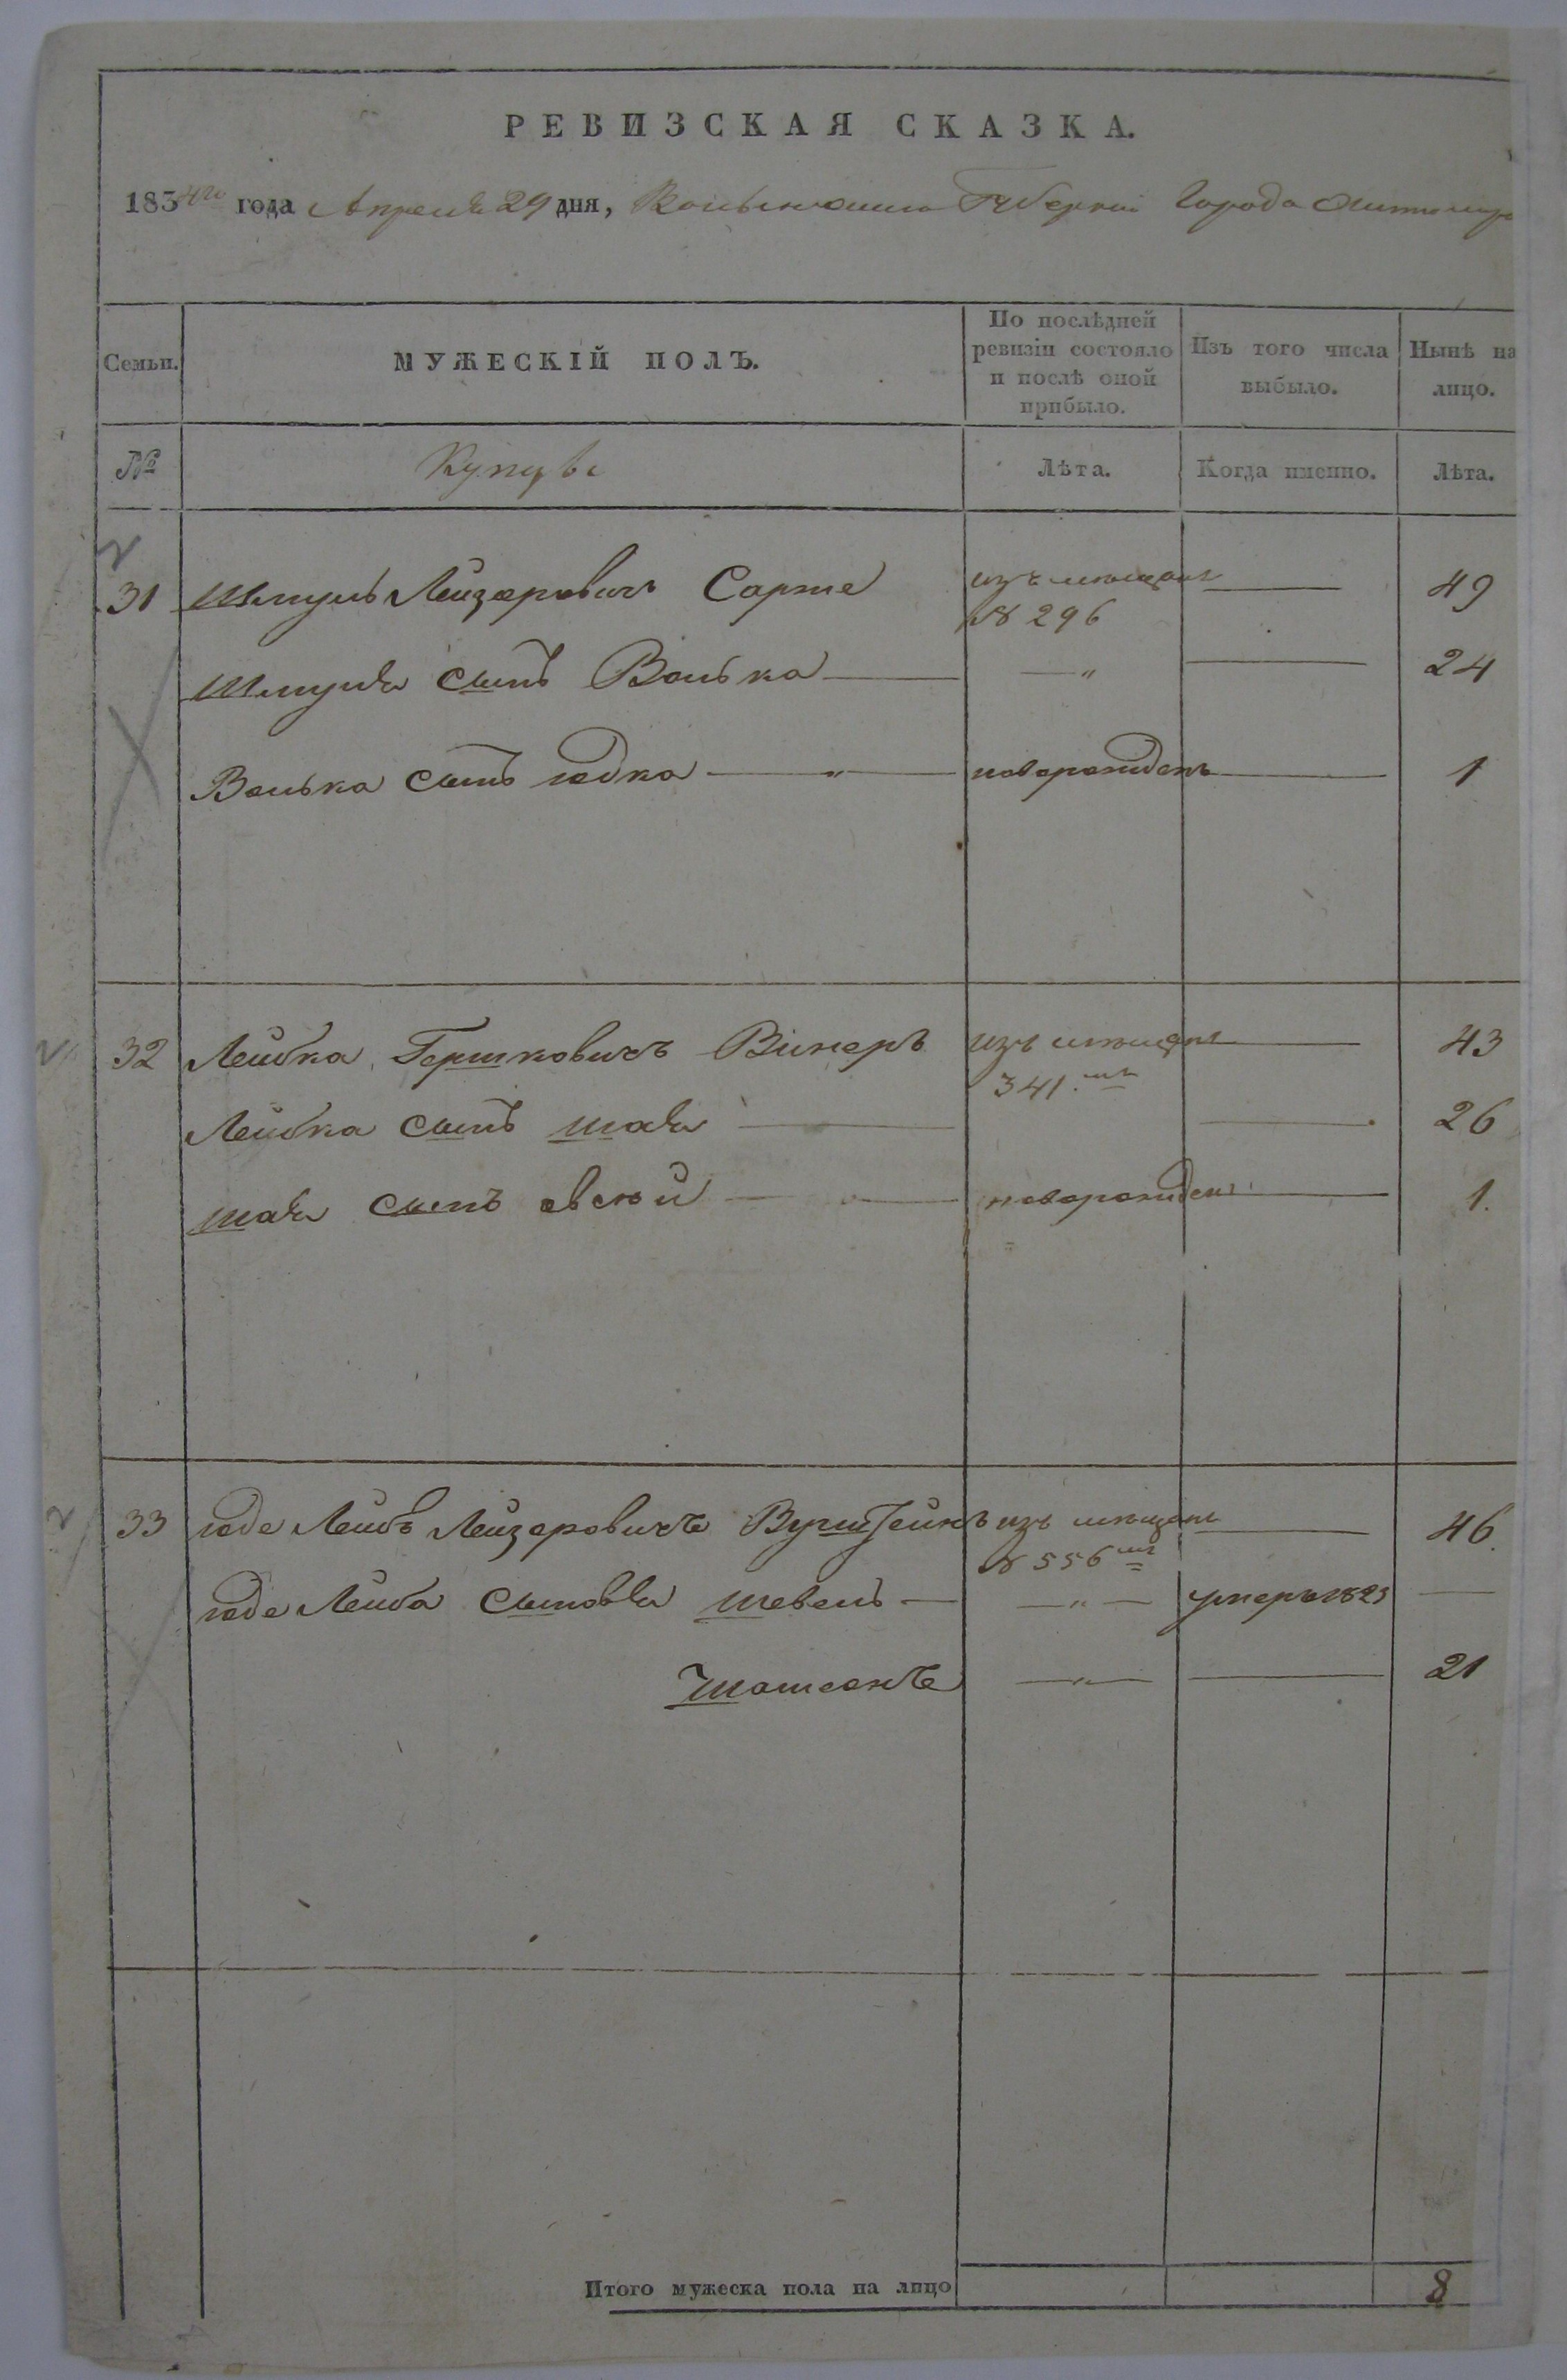 РЕВИЗСКАЯ СКАЗКА.
1834го года Апреля 29 дня, Волынской Губернии Города Житомира
Семьи. МУЖЕСКІЙ ПОЛЪ. По послѣдней ревизіи состояло и послѣ оной прибыло. Изъ того числа выбыло. Нынѣ на лицо.
№ Купцы Лѣта. Когда именно. Лѣта.
2
31 Шмуль Лейзеровичъ изъ мещанъ — 49
№ 296
Шмуля сынъ Волька — — " — 24
Волька сынъ — " — новорожденъ — 1
2
32 Лейбка Гершковичъ Винеръ изъ мещанъ — 43
341
Лейбка сынъ Шая — — 26
Шая сынъ — новорожденъ — 1.
2
33 Лейбъ Лейзеровичъ изъ мещанъ — 46.
№ 556
Лейба сыновья — — " — умеръ 1823 —
— " — — 21
Итого мужеска пола на лицо 8